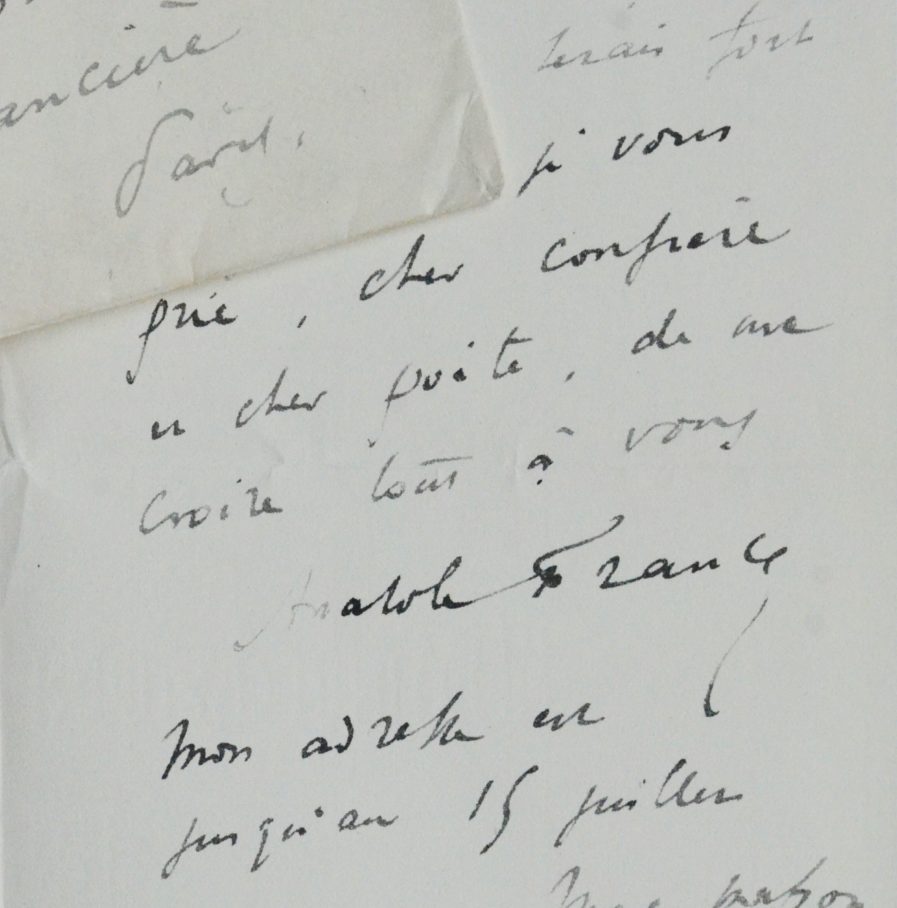 ancière
Paris.
serais fort
je vous
prie, cher confrère
et cher poète, de me
croire tout à vous
Anatole France
Mon adresse est
jusqu'au 15 juillet